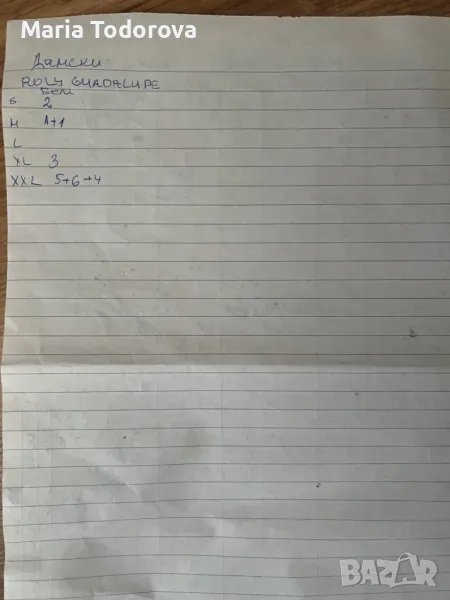 Maria Todorova
Дамски
ROLY GUADALUPE
Бели
S 2
M 1+1
L
XL 3
XXL 5+6+4
BAZAR